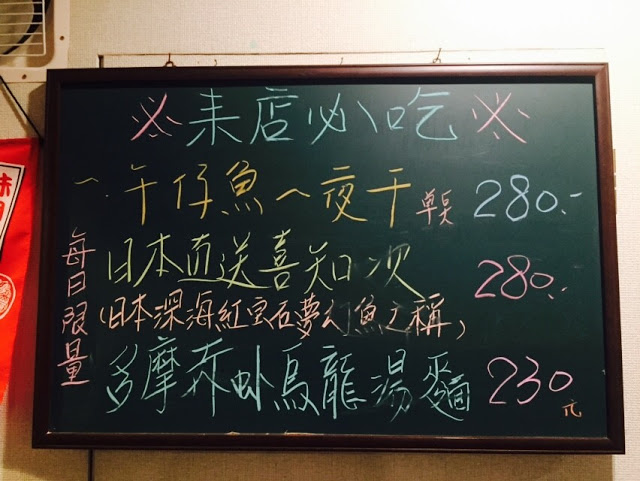 ※來店必吃※
一. 午仔魚一夜干 單支 280.-
日本直送喜知次 280.-
(日本深海紅宝石夢幻魚之稱)
多摩赤蚶烏龍湯麵 230元
每日限量